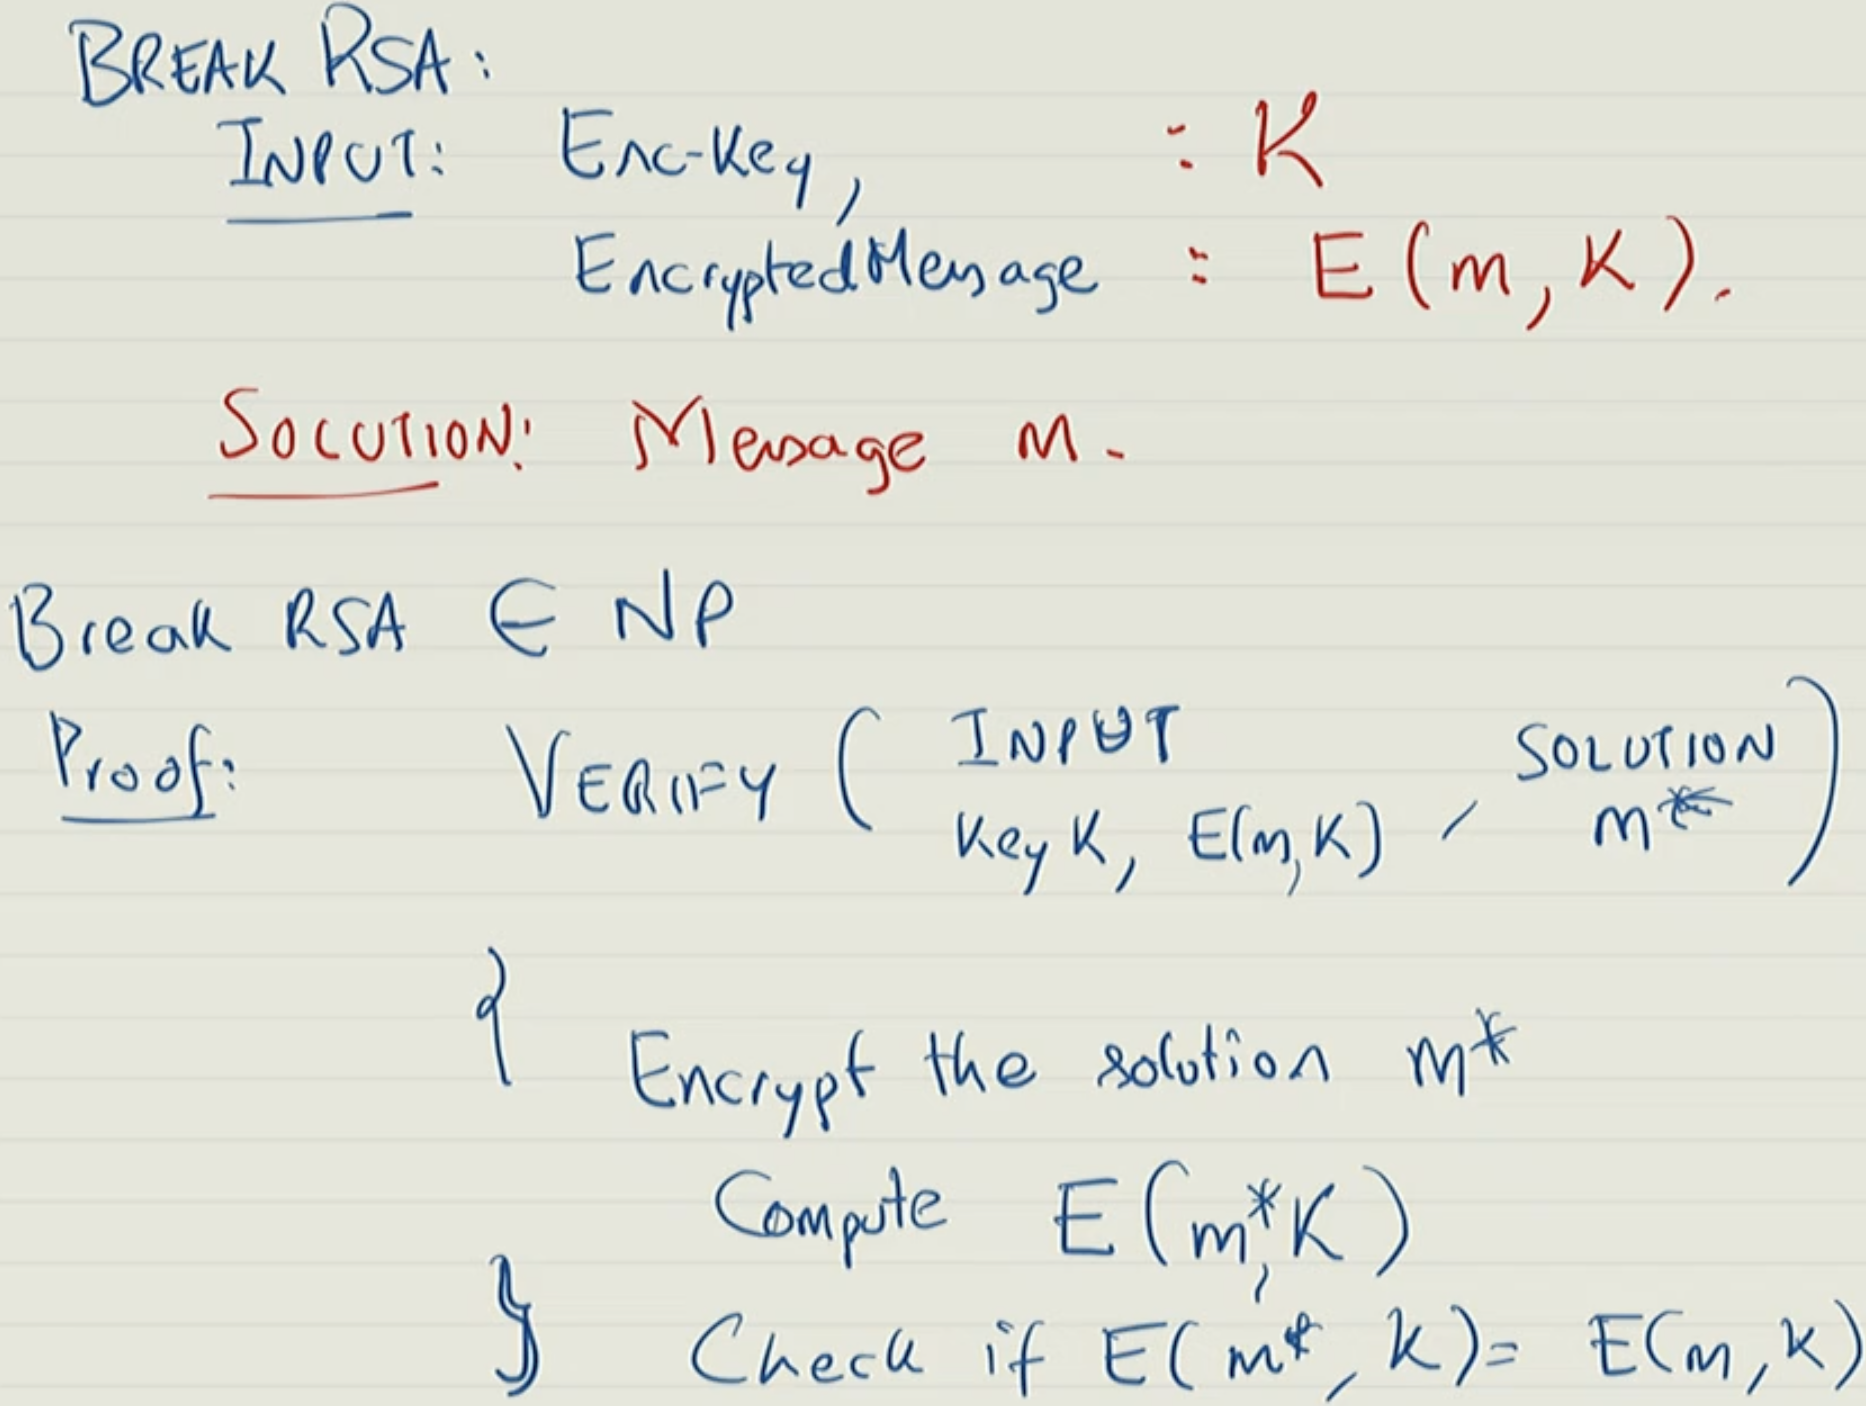 BREAK RSA:
INPUT: Enc-Key, : K
EncryptedMessage : E(m, K).
SOLUTION: Message m.
Break RSA ∈ NP
Proof: VERIFY ( INPUT Key K, E(m,K) , SOLUTION m* )
{
Encrypt the solution m*
Compute E(m*, K)
} Check if E(m*, K) = E(m, K)